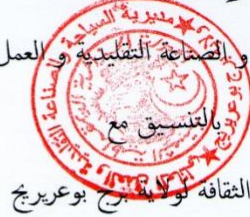 و الصناعة التقليدية و العمل
بالتنسيق مع
الثقافة لولاية برج بوعريريج
مديرية السياحة و الصناعة التقليدية و العمل